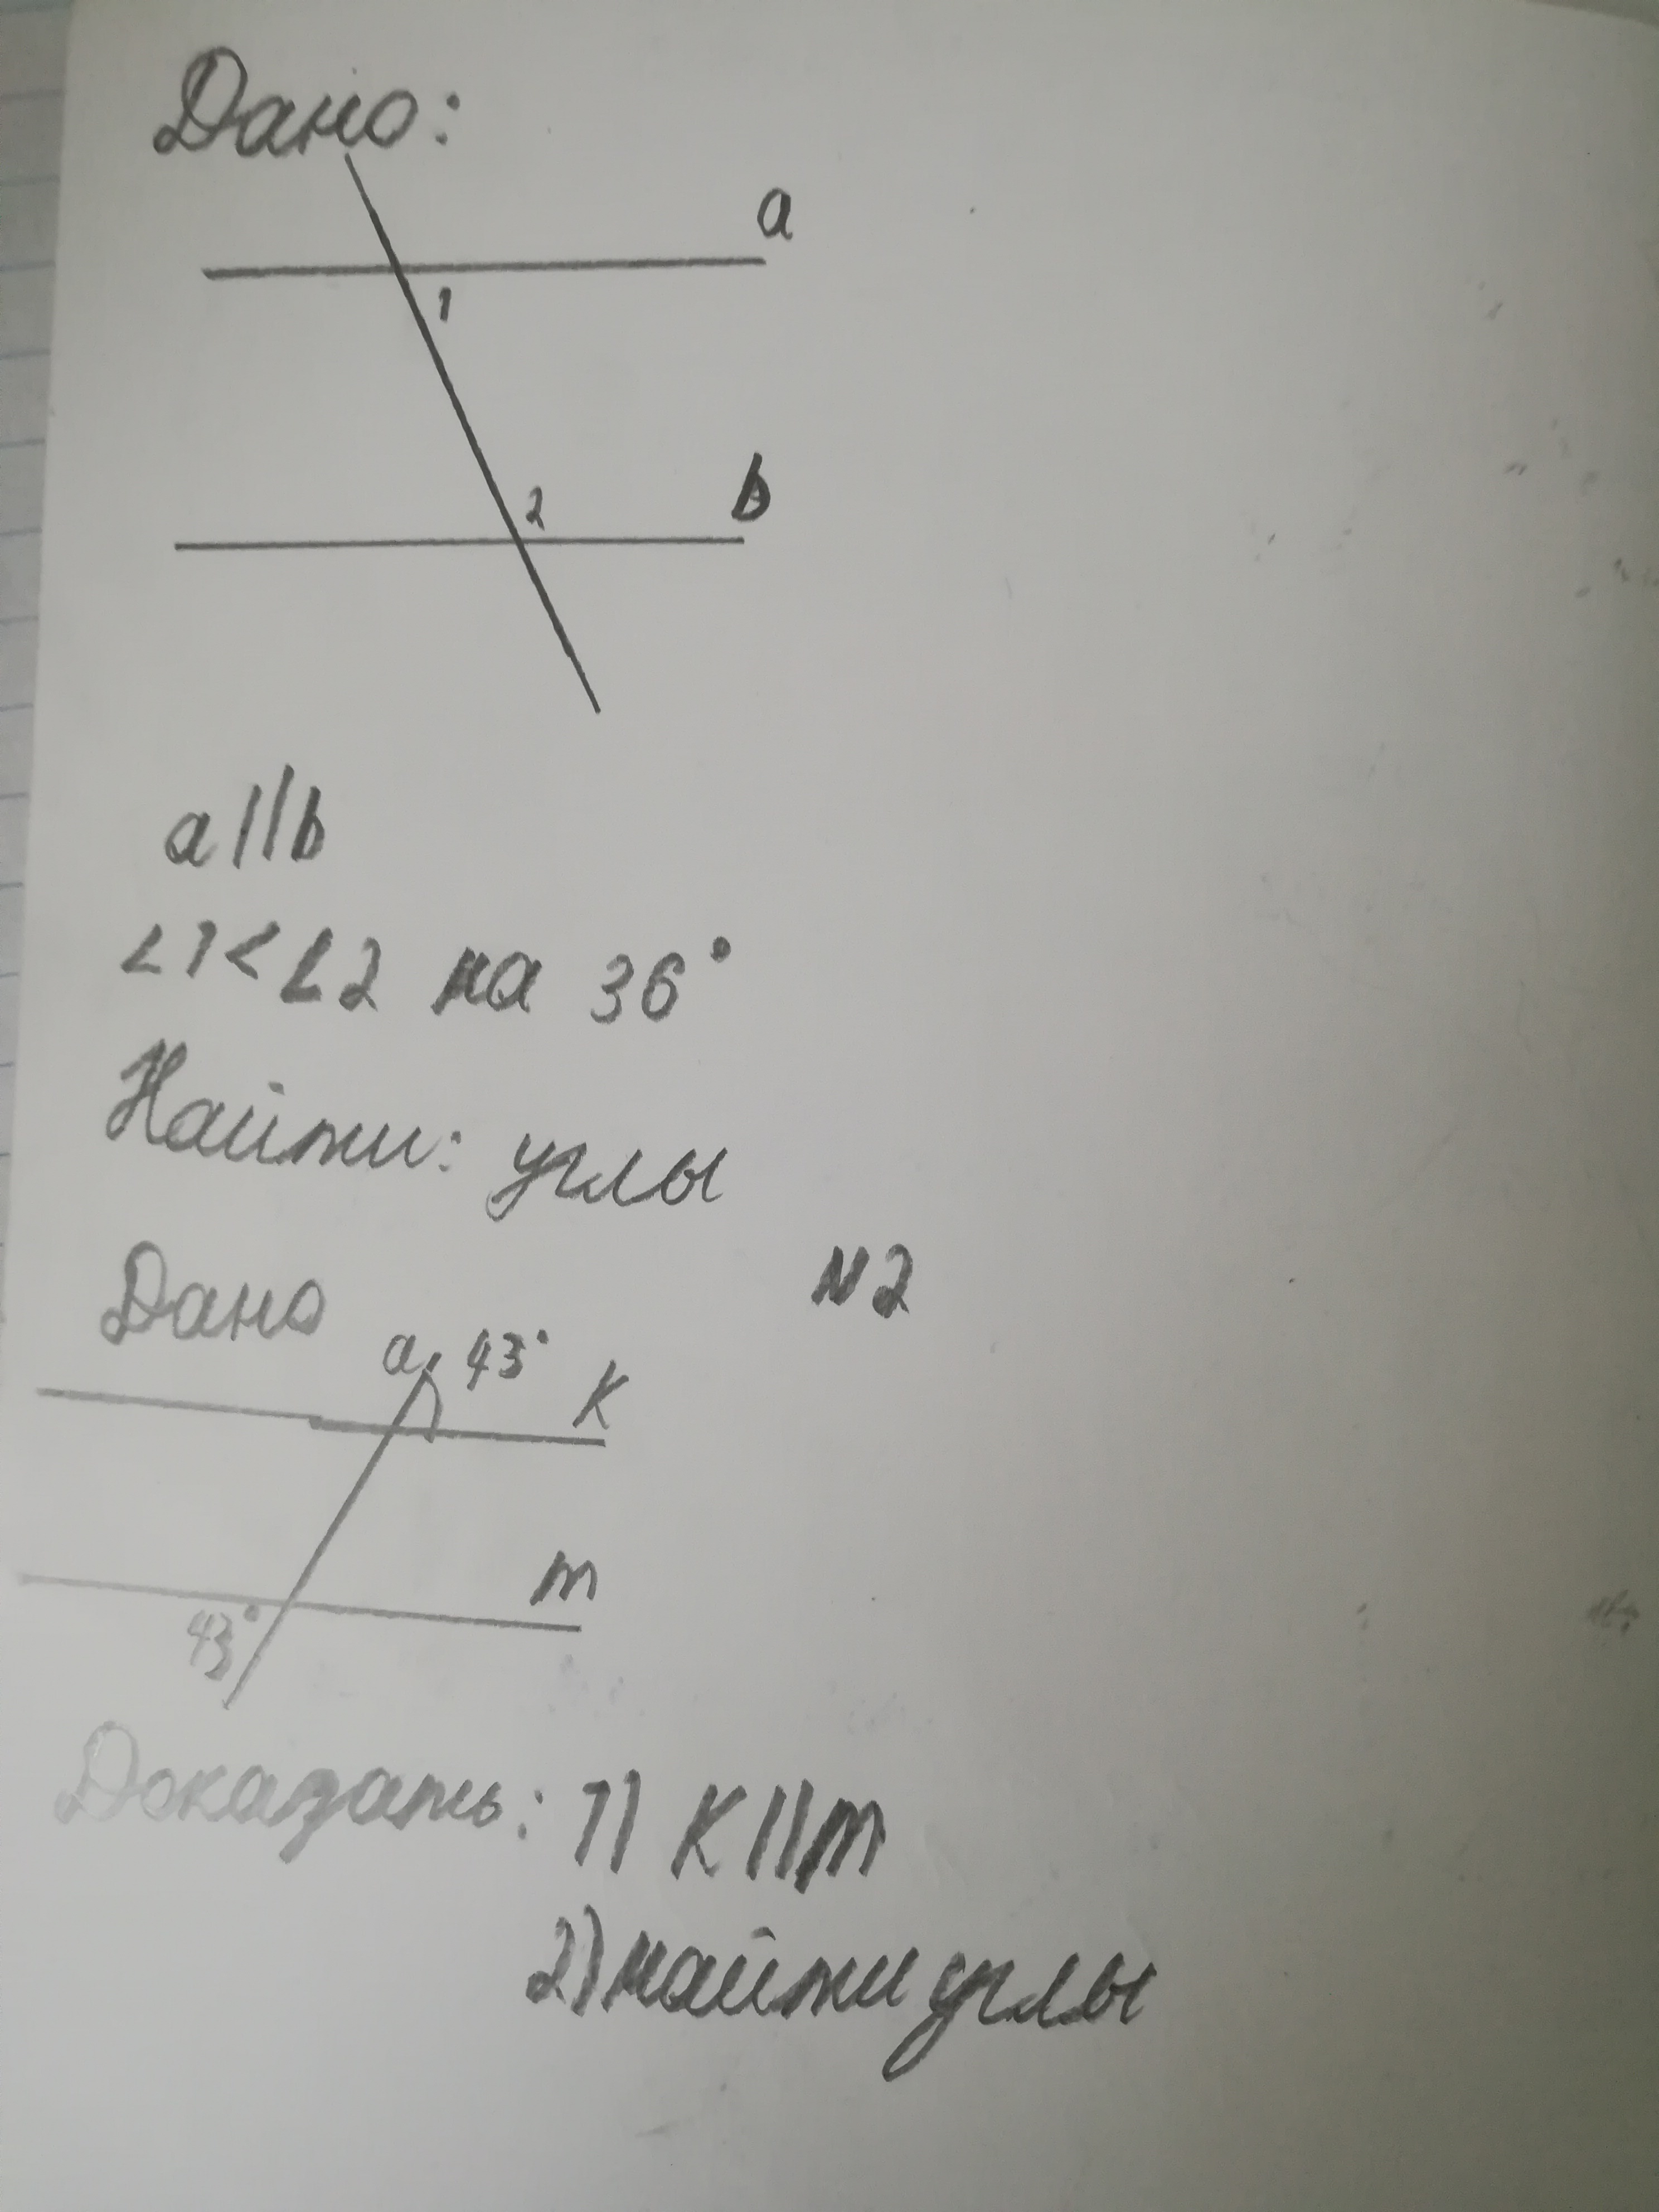 Дано:
a
1
2
b
a||b
∠1<∠2 на 36°
Найти: углы
N2
Дано
a 43° K
m
43°
Доказать: 1) K||m
2) найти углы